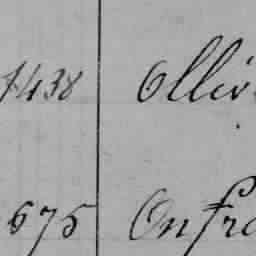 1438 Olliv
675 Onfro